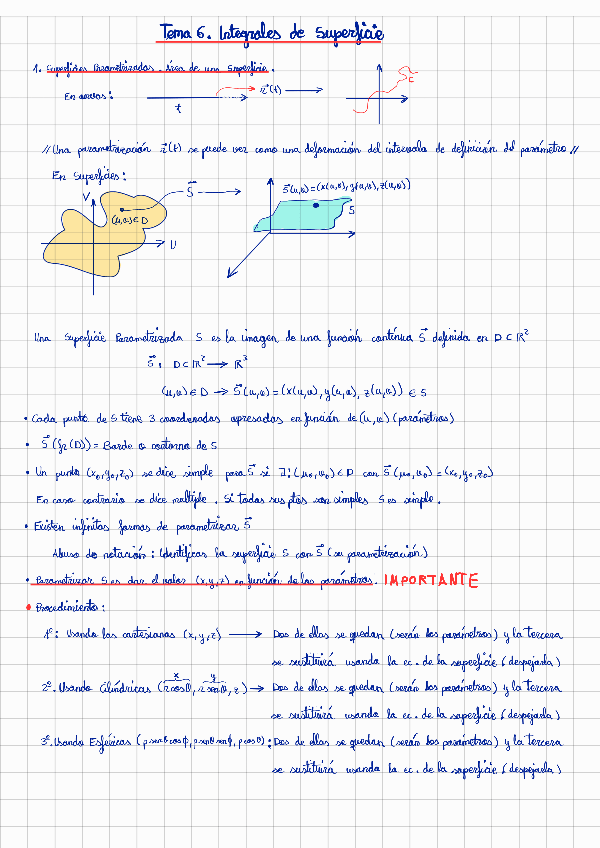 Tema 6. Integrales de Superficie
1. Superficies Parametrizadas. Área de una Superficie.
En curvas: t r⃗(t) C
// Una parametrización r⃗(t) se puede ver como una deformación del intervalo de definición del parámetro //
En Superficies:
V S⃗ S⃗(u,v)=(x(u,v), y(u,v), z(u,v))
(u,v)∈D S
U
Una Superficie Parametrizada S es la imagen de una función contínua S⃗ definida en D⊂ℝ²
S⃗: D⊂ℝ² → ℝ³
(u,v)∈D → S⃗(u,v)=(x(u,v), y(u,v), z(u,v)) ∈ S
• Cada punto de S tiene 3 coordenadas expresadas en función de (u,v) (parámetros)
• S⃗(fr(D)) = Borde o contorno de S
• Un punto (x₀,y₀,z₀) se dice simple para S⃗ si ∃! (u₀,v₀)∈D con S⃗(u₀,v₀)=(x₀,y₀,z₀)
En caso contrario se dice multiple. Si todos sus ptos son simples S es simple.
• Existen infinitas formas de parametrizar S⃗
Abuso de notación: Identificar la superficie S con S⃗ (su parametrización)
• Parametrizar S es dar el valor (x,y,z) en función de los parámetros. IMPORTANTE
• Procedimiento:
1º: Usando las cartesianas (x,y,z) → Dos de ellas se quedan (serán los parámetros) y la tercera
se sustituirá usando la ec. de la superficie (despejarla)
x y
2º. Usando Cilíndricas (r cosθ, r senθ, z) → Dos de ellas se quedan (serán los parámetros) y la tercera
se sustituirá usando la ec. de la superficie (despejarla)
3º. Usando Esféricas (ρ senθ cosϕ, ρ senθ senϕ, ρ cosθ): Dos de ellas se quedan (serán los parámetros) y la tercera
se sustituirá usando la ec. de la superficie (despejarla)